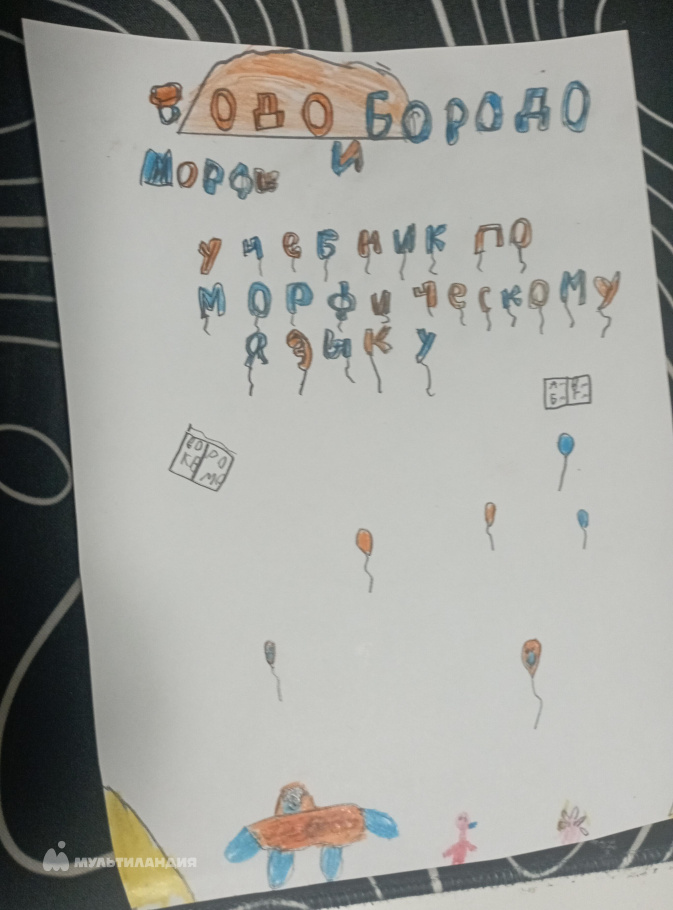 БОДО БОРОДО
И
МОРФИ
УЧЕБНИК ПО
МОРФИЧЕСКОМУ
ЯЗЫКУ
МУЛЬТИЛАНДИЯ